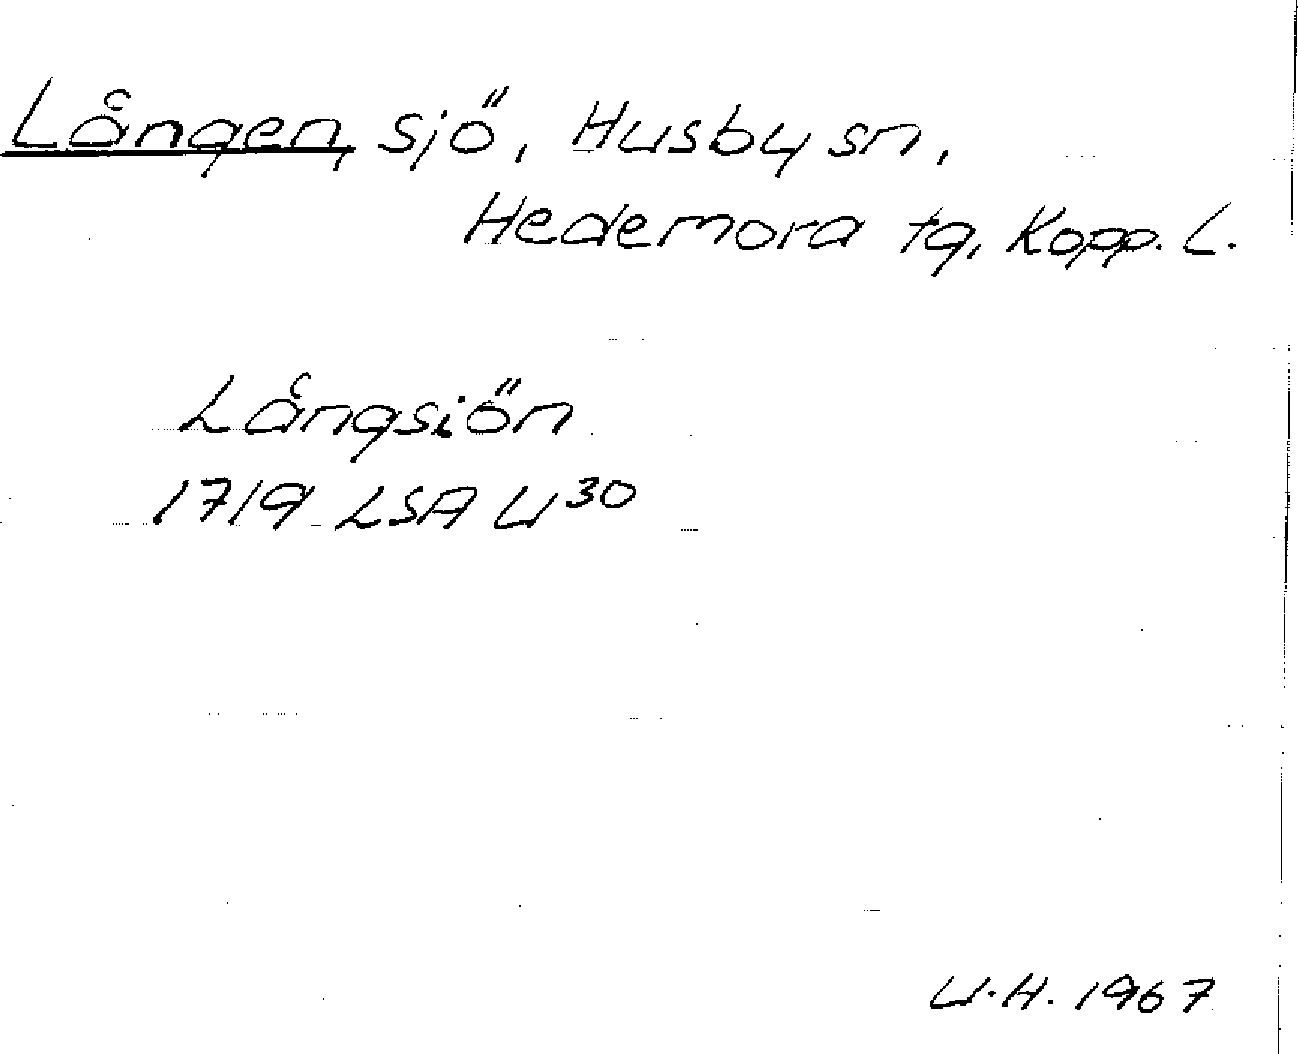 Lången, sjö, Husby sn,
Hedemora tg, Kopp. L.
Långsiön
1719 LSA U 30
U.H. 1967